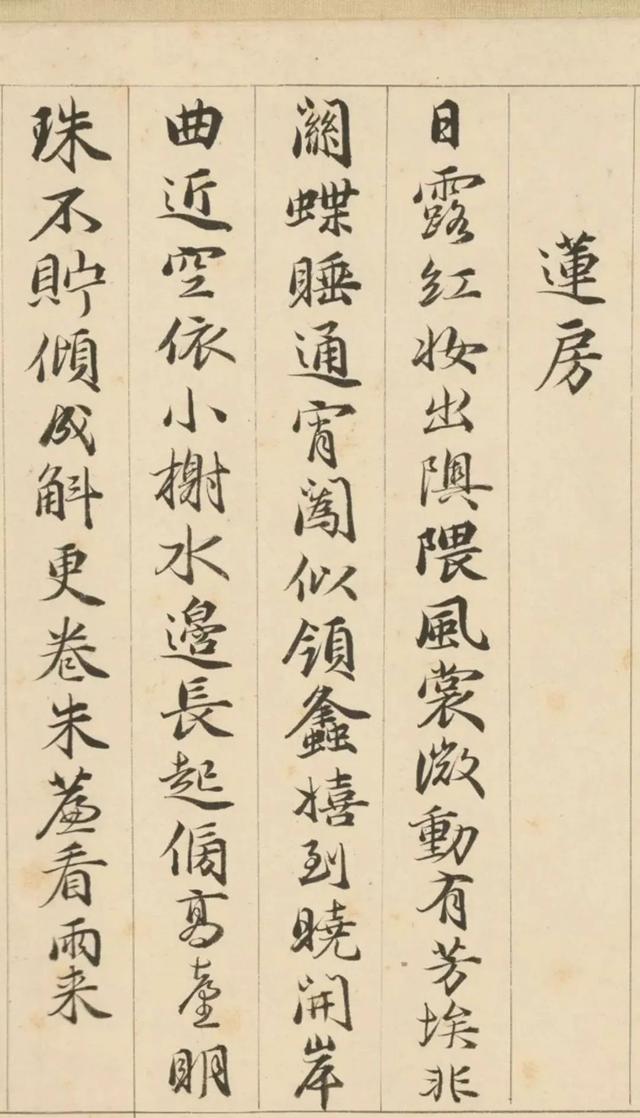 蓮房
日露紅妝出隩隈風裳微動有芳埃非
關蝶睡通宵闔似領蠭嬉到曉開岸
曲近空依小榭水邊長起傍高臺明
珠不貯傾成斛更卷朱簾看雨来